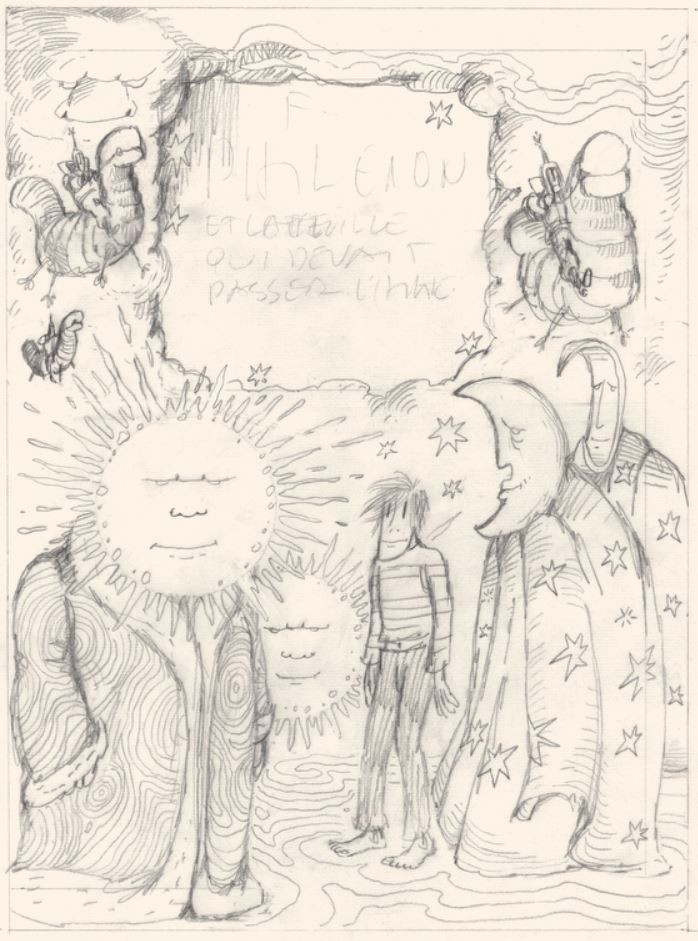 F.
PHILEMON
ET LA FEUILLE
QUI DEVAIT
PASSER L'HIVER